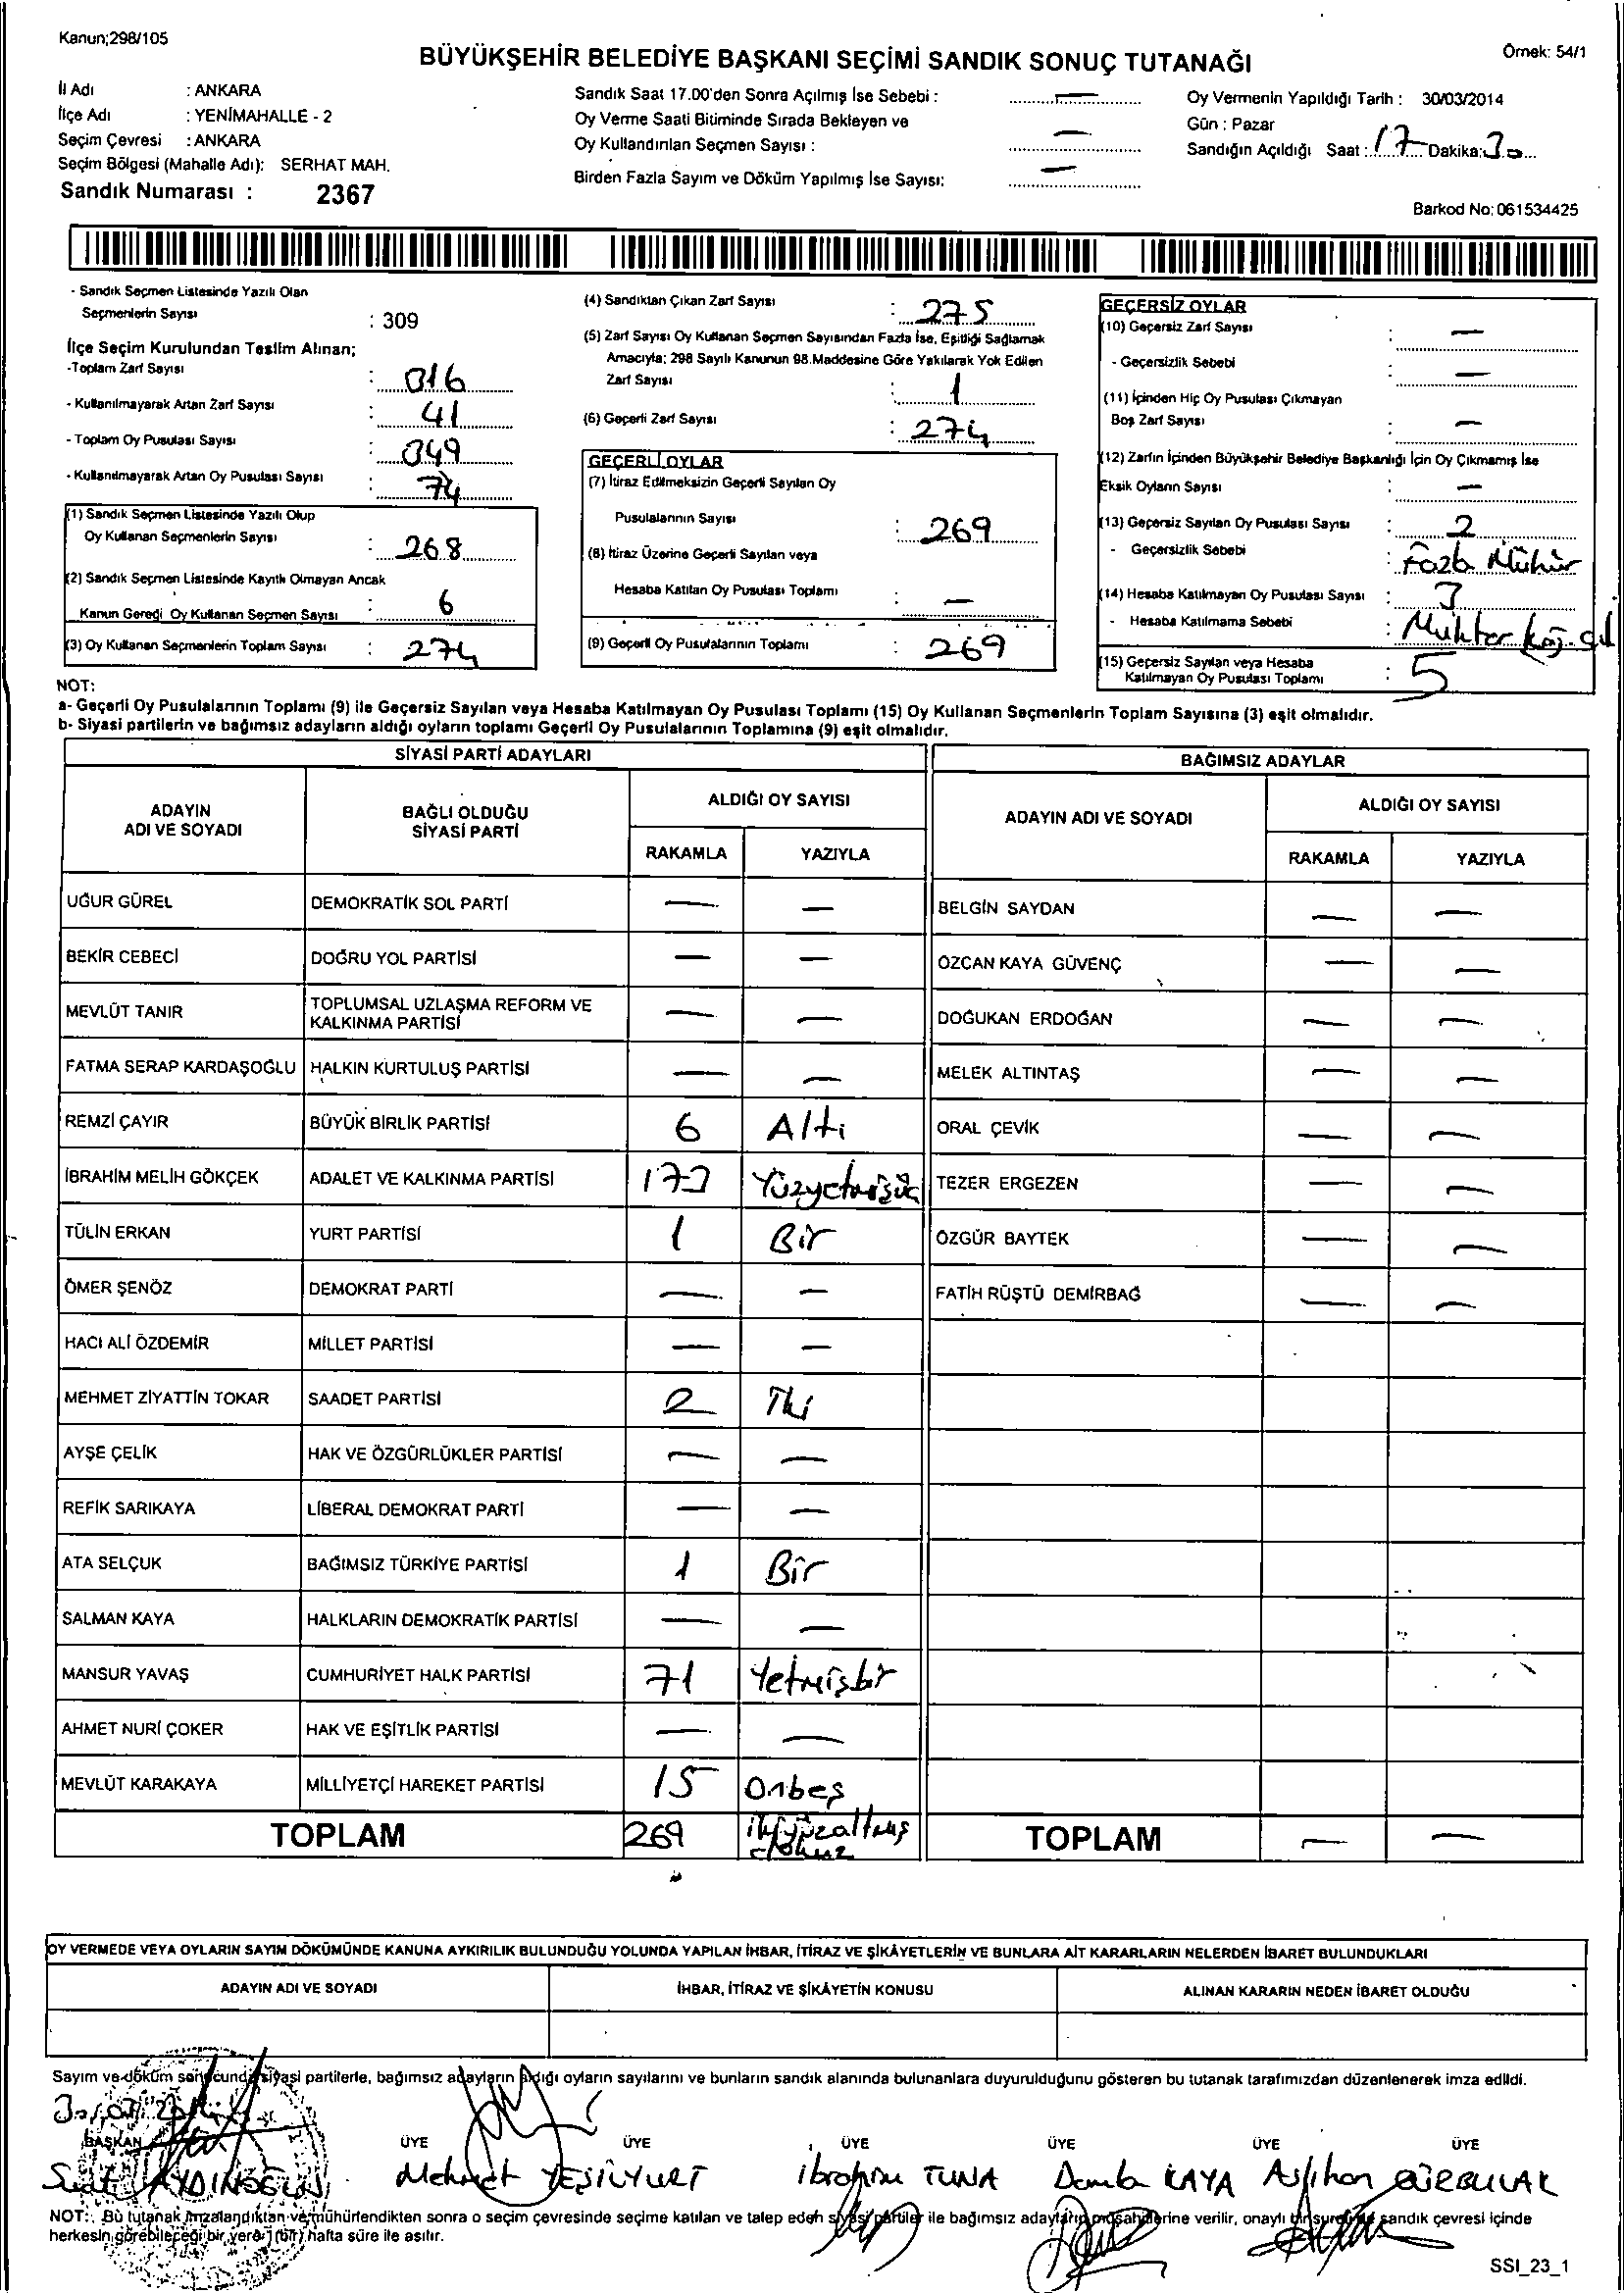 Kanun;298/105
Örnek: 54/1
BÜYÜKŞEHİR BELEDİYE BAŞKANI SEÇİMİ SANDIK SONUÇ TUTANAĞI
İl Adı : ANKARA
İlçe Adı : YENİMAHALLE - 2
Seçim Çevresi : ANKARA
Seçim Bölgesi (Mahalle Adı): SERHAT MAH.
Sandık Numarası : 2367
Sandık Saat 17.00'den Sonra Açılmış İse Sebebi : —
Oy Verme Saati Bitiminde Sırada Bekleyen ve
Oy Kullandırılan Seçmen Sayısı : —
Birden Fazla Sayım ve Döküm Yapılmış İse Sayısı: —
Oy Vermenin Yapıldığı Tarih : 30/03/2014
Gün : Pazar
Sandığın Açıldığı Saat : 17 Dakika: 30
Barkod No: 061534425
- Sandık Seçmen Listesinde Yazılı Olan
Seçmenlerin Sayısı : 309
İlçe Seçim Kurulundan Teslim Alınan;
-Toplam Zarf Sayısı : 316
- Kullanılmayarak Artan Zarf Sayısı : 41
- Toplam Oy Pusulası Sayısı : 349
- Kullanılmayarak Artan Oy Pusulası Sayısı : 74
(1) Sandık Seçmen Listesinde Yazılı Olup
Oy Kullanan Seçmenlerin Sayısı : 268
(2) Sandık Seçmen Listesinde Kayıtlı Olmayan Ancak
Kanun Gereği Oy Kullanan Seçmen Sayısı : 6
(3) Oy Kullanan Seçmenlerin Toplam Sayısı : 274
(4) Sandıktan Çıkan Zarf Sayısı : 275
(5) Zarf Sayısı Oy Kullanan Seçmen Sayısından Fazla İse, Eşitliği Sağlamak
Amacıyla; 298 Sayılı Kanunun 98.Maddesine Göre Yakılarak Yok Edilen
Zarf Sayısı : 1
(6) Geçerli Zarf Sayısı : 274
GEÇERLİ OYLAR
(7) İtiraz Edilmeksizin Geçerli Sayılan Oy
Pusulalarının Sayısı : 269
(8) İtiraz Üzerine Geçerli Sayılan veya
Hesaba Katılan Oy Pusulası Toplamı : —
(9) Geçerli Oy Pusulalarının Toplamı : 269
GEÇERSİZ OYLAR
(10) Geçersiz Zarf Sayısı : —
- Geçersizlik Sebebi : —
(11) İçinden Hiç Oy Pusulası Çıkmayan
Boş Zarf Sayısı : —
(12) Zarfın İçinden Büyükşehir Belediye Başkanlığı İçin Oy Çıkmamış İse
Eksik Oyların Sayısı : —
(13) Geçersiz Sayılan Oy Pusulası Sayısı : 2
- Geçersizlik Sebebi : Fazla Mühür
(14) Hesaba Katılmayan Oy Pusulası Sayısı : 3
- Hesaba Katılmama Sebebi : Muhtar
(15) Geçersiz Sayılan veya Hesaba
Katılmayan Oy Pusulası Toplamı : 5
NOT:
a- Geçerli Oy Pusulalarının Toplamı (9) ile Geçersiz Sayılan veya Hesaba Katılmayan Oy Pusulası Toplamı (15) Oy Kullanan Seçmenlerin Toplam Sayısına (3) eşit olmalıdır.
b- Siyasi partilerin ve bağımsız adayların aldığı oyların toplamı Geçerli Oy Pusulalarının Toplamına (9) eşit olmalıdır.
SİYASİ PARTİ ADAYLARI
ADAYIN ADI VE SOYADI
BAĞLI OLDUĞU SİYASİ PARTİ
ALDIĞI OY SAYISI
RAKAMLA YAZIYLA
UĞUR GÜREL DEMOKRATİK SOL PARTİ — —
BEKİR CEBECİ DOĞRU YOL PARTİSİ — —
MEVLÜT TANIR TOPLUMSAL UZLAŞMA REFORM VE KALKINMA PARTİSİ — —
FATMA SERAP KARDAŞOĞLU HALKIN KURTULUŞ PARTİSİ — —
REMZİ ÇAYIR BÜYÜK BİRLİK PARTİSİ 6 Altı
İBRAHİM MELİH GÖKÇEK ADALET VE KALKINMA PARTİSİ 173 Yüzyetmişüç
TÜLİN ERKAN YURT PARTİSİ 1 Bir
ÖMER ŞENÖZ DEMOKRAT PARTİ — —
HACI ALİ ÖZDEMİR MİLLET PARTİSİ — —
MEHMET ZİYATTİN TOKAR SAADET PARTİSİ 2 İki
AYŞE ÇELİK HAK VE ÖZGÜRLÜKLER PARTİSİ — —
REFİK SARIKAYA LİBERAL DEMOKRAT PARTİ — —
ATA SELÇUK BAĞIMSIZ TÜRKİYE PARTİSİ 1 Bir
SALMAN KAYA HALKLARIN DEMOKRATİK PARTİSİ — —
MANSUR YAVAŞ CUMHURİYET HALK PARTİSİ 71 Yetmişbir
AHMET NURİ ÇOKER HAK VE EŞİTLİK PARTİSİ — —
MEVLÜT KARAKAYA MİLLİYETÇİ HAREKET PARTİSİ 15 Onbeş
TOPLAM 269 ikiyüzaltmış dokuz
BAĞIMSIZ ADAYLAR
ADAYIN ADI VE SOYADI
ALDIĞI OY SAYISI
RAKAMLA YAZIYLA
BELGİN SAYDAN — —
ÖZCAN KAYA GÜVENÇ — —
DOĞUKAN ERDOĞAN — —
MELEK ALTINTAŞ — —
ORAL ÇEVİK — —
TEZER ERGEZEN — —
ÖZGÜR BAYTEK — —
FATİH RÜŞTÜ DEMİRBAĞ — —
TOPLAM — —
OY VERMEDE VEYA OYLARIN SAYIM DÖKÜMÜNDE KANUNA AYKIRILIK BULUNDUĞU YOLUNDA YAPILAN İHBAR, İTİRAZ VE ŞİKÂYETLERİN VE BUNLARA AİT KARARLARIN NELERDEN İBARET BULUNDUKLARI
ADAYIN ADI VE SOYADI İHBAR, İTİRAZ VE ŞİKÂYETİN KONUSU ALINAN KARARIN NEDEN İBARET OLDUĞU
Sayım ve döküm sonucunda siyasi partilerle, bağımsız adayların aldığı oyların sayılarını ve bunların sandık alanında bulunanlara duyurulduğunu gösteren bu tutanak tarafımızdan düzenlenerek imza edildi.
BAŞKAN ÜYE ÜYE ÜYE ÜYE ÜYE ÜYE
Mehmet YEŞİLYURT İbrahim TUNA Damla KAYA Aslıhan
NOT: Bu tutanak imzalandıktan ve mühürlendikten sonra o seçim çevresinde seçime katılan ve talep eden siyasi partiler ile bağımsız adayların müşahitlerine verilir, onaylı bir sureti de sandık çevresi içinde
herkesin görebileceği bir yere 1 (bir) hafta süre ile asılır.
SSI_23_1